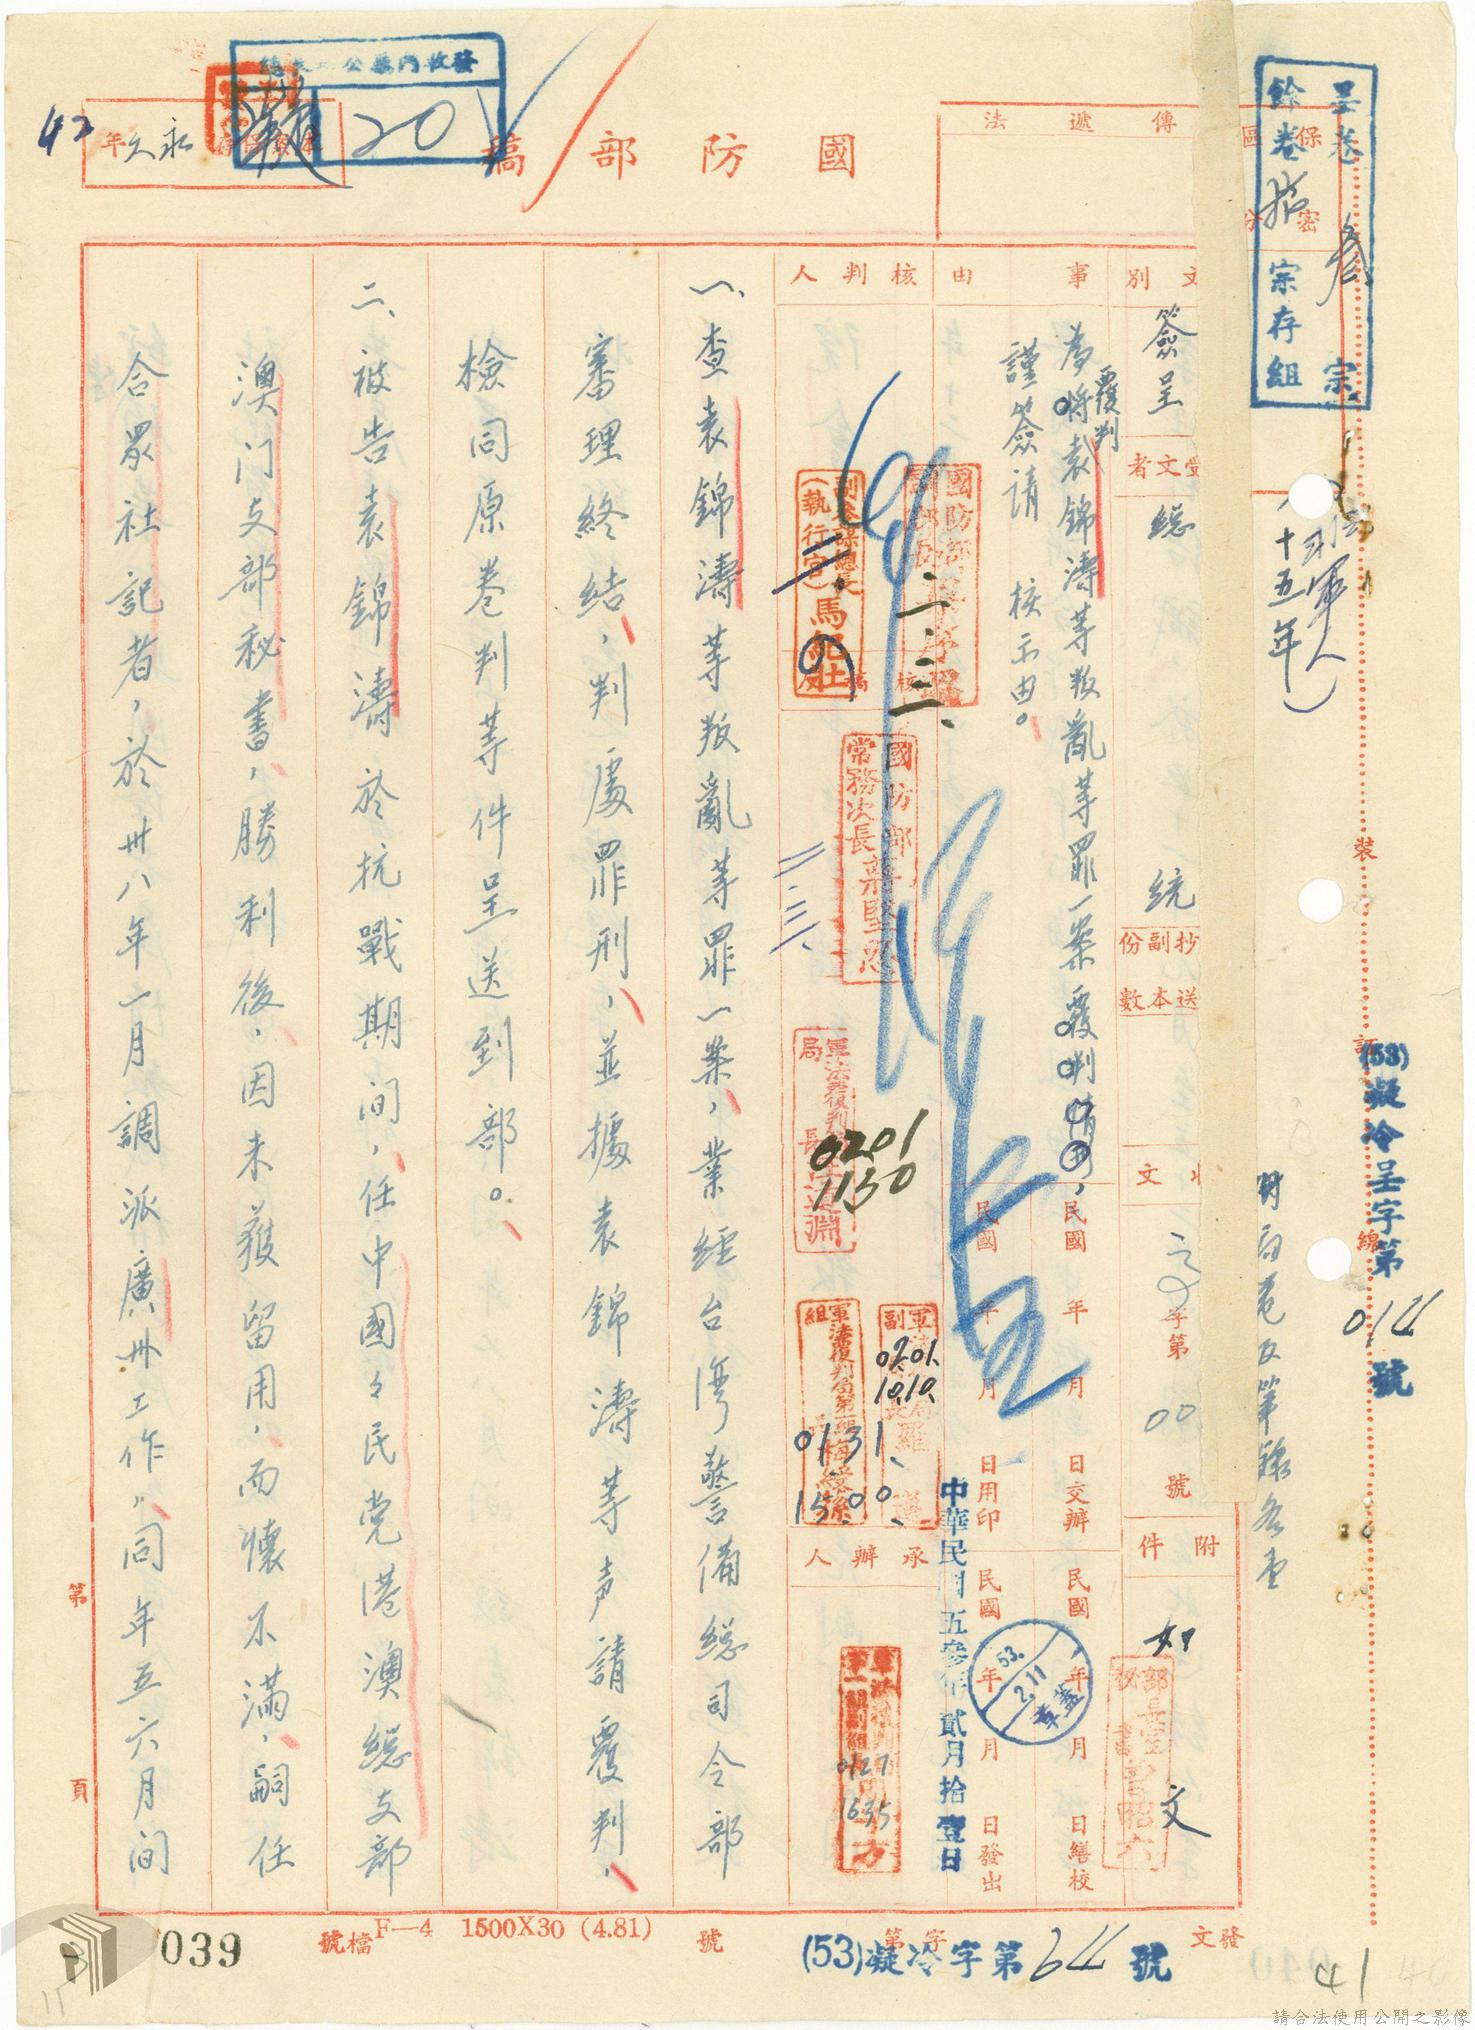 呈卷 宗
餘卷拾 宗存組
非軍人
十五年)
保密區分
傳遞法
國防部稿
20
永久
年
42
裝訂線
(53)凝冷呈字第 014 號
文別
簽呈
受文者
總統
抄送副本份數
收文
字第
號
附件
如文
事由
為將袁錦濤等叛亂等罪一案覆判情形,
覆判
謹簽請 核示由。
民國 年 月 日交辦
民國 年 月 日繕校
民國 年 月 日用印
民國 年 月 日發出
中華民國五參年貳月拾壹日
53.
2.11
核判人
核稿
承辦人
副參謀總長
(執行官)馬紀壯
國防部
常務次長蔣堅忍
0201
1130
0201.
1010.
0131、
1500、
0127
1635
一、查袁錦濤等叛亂等罪一案,業經台灣警備總司令部
審理終結,判處罪刑,並據袁錦濤等声請覆判,
檢同原卷判等件呈送到部。
二、被告袁錦濤於抗戰期間,任中國々民党港澳總支部
澳门支部秘書,勝利後,因未獲留用,而懷不滿,嗣任
合眾社記者,於卅八年一月調派廣州工作,同年五六月间
第 頁
發文
(53)凝冷字第 644 號
字第 號
檔號
F—4 1500X30 (4.81)
039
41
請合法使用公開之影像